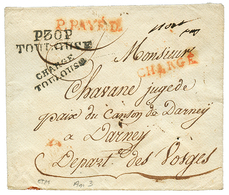 P.PAYÉ
P30P
TOULOUSE
CHARGÉ
TOULOUSE
CHARGÉ
Monsieur
Chavane juge de
paix du canton de Darney
a Darney
Depart des Vosges